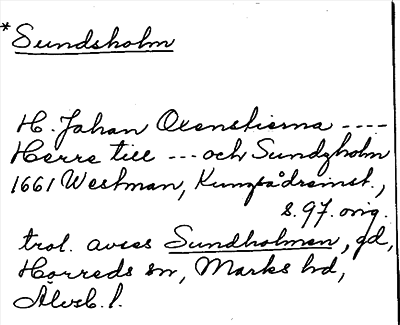 *Sundsholm
H. Johan Oxenstierna ----
Herre till --- och Sundzholm
1661 Westman, Kungsådrainst.,
s. 97. orig.
trol. avses Sundholmen, gd,
Horreds sn, Marks hd,
Älvsb. l.